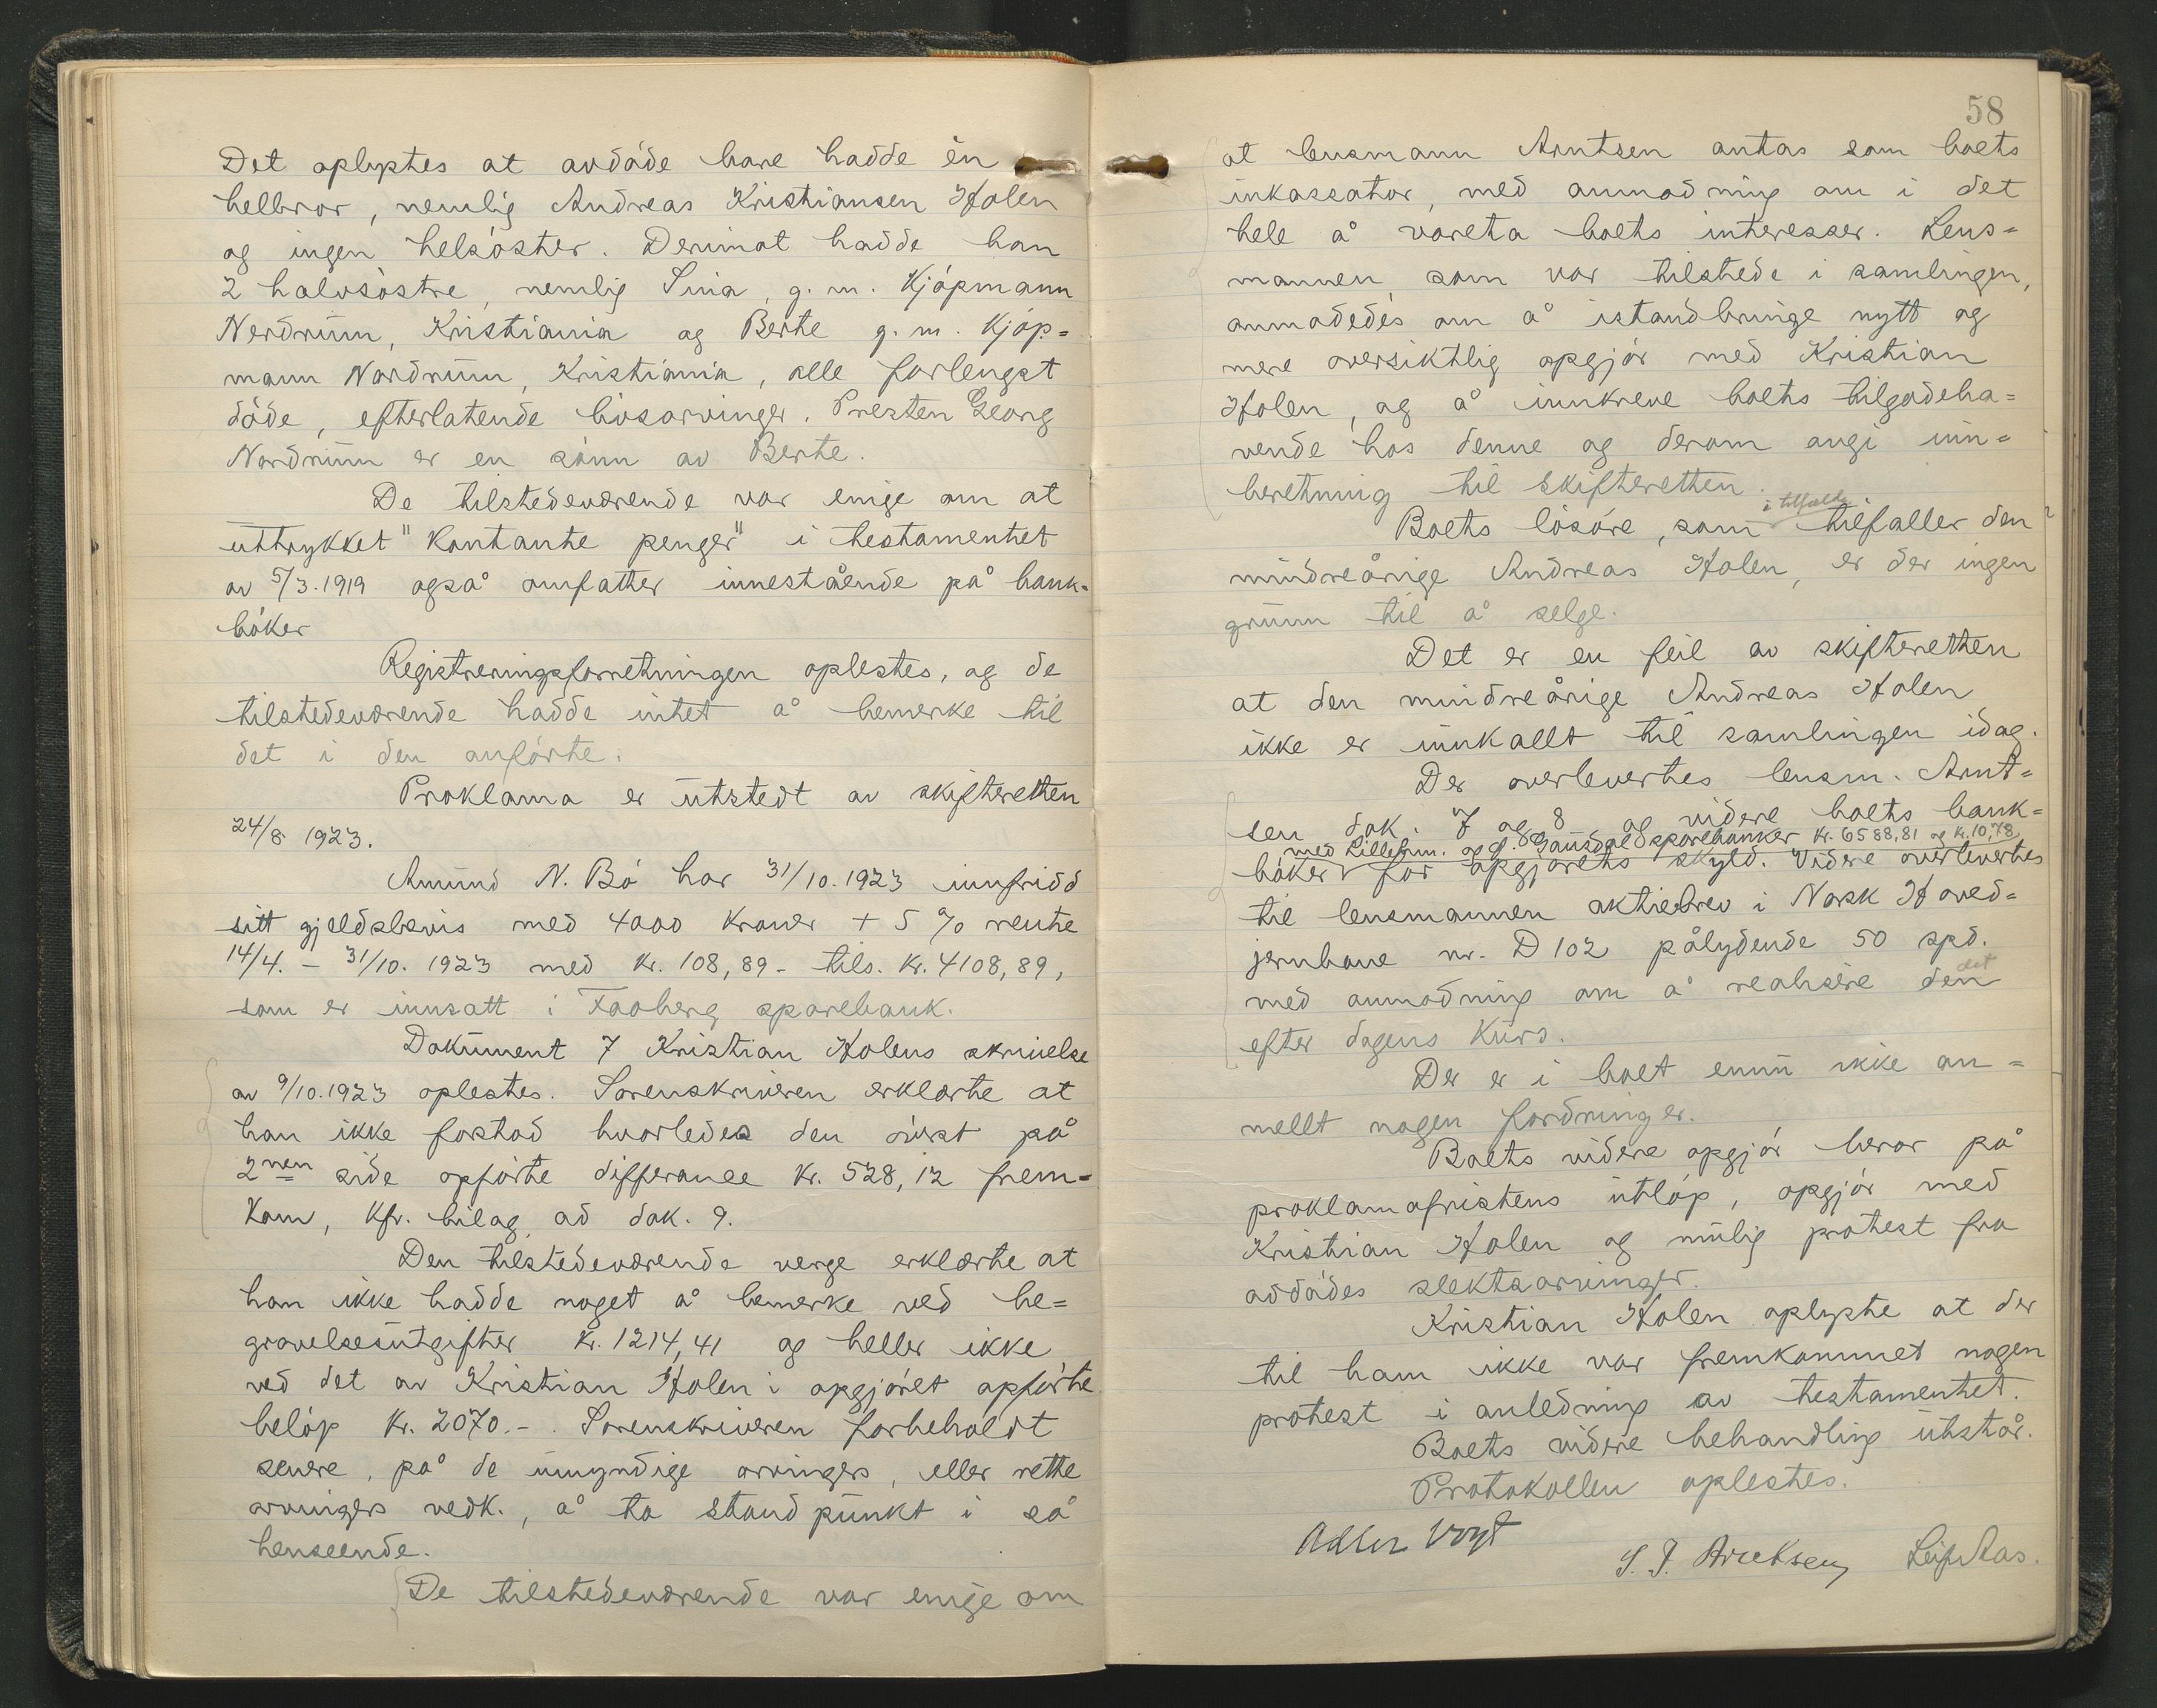 Det oplystes at avdøde bare hadde én
helbror, nemlig Andreas Kristiansen Holen
og ingen helsøster. Derimot hadde han
2 halvsøstre, nemlig Sina, g. m. Kjøpmann
Nerdrum, Kristiania og Berte g. m. Kjøp=
mann Nordrum, Kristiania, alle forlengst
døde, efterlatende livsarvinger. Presten Georg
Nordrum er en sønn av Berte.
De tilstedeværende var enige om at
uttrykket "Kontante penger" i testamentet
av 5/3.1919 også omfatter innestående på bank=
bøker
Registreringsforretningen oplestes, og de
tilstedeværende hadde intet å bemerke til
det i den anførte.
Proklama er utstedt av skifteretten
24/8 1923.
Amund N. Bø har 31/10.1923 innfridd
sitt gjeldsbevis med 4000 kroner + 5 % rente
14/4. - 31/10. 1923 med kr. 108,89 - tils. kr. 4108,89,
som er innsatt i Faaberg sparebank.
Dokument 7 Kristian Holens skrivelse
av 9/10.1923 oplestes. Sorenskriveren erklærte at
han ikke forstod hvorledes den øverst på
2nen side opførte differanse kr. 528,12 frem=
kom, kfr. bilag ad dok. 9.
Den tilstedeværende verge erklærte at
han ikke hadde noget å bemerke ved be=
gravelsesutgifter kr. 1214,41 og heller ikke
ved det av Kristian Holen i opgjøret opførte
beløp kr. 2070.-. Sorenskriveren forbeholdt
senere, på de umyndige arvingers, eller rette
arvingers vedk., å ta standpunkt i så
henseende.
De tilstedeværende var enige om
58
at lensmann Arntsen antas som boets
inkassator, med anmodning om i det
hele å vareta boets interesser. Lens=
mannen, som var tilstede i samlingen,
anmodedes om å istandbringe nytt og
mere oversiktlig opgjør med Kristian
Holen, og å innkreve boets tilgodeha=
vende hos denne og derom angi inn=
beretning til skifteretten.
i tilfelde
Boets løsøre, som tilfaller den
mindreårige Andreas Holen, er der ingen
grunn til å selge.
Det er en feil av skifteretten
at den mindreårige Andreas Holen
ikke er innkallt til samlingen idag.
Der overlevertes lensm. Arnt=
sen dok. 7 og 8 og videre boets bank=
med Lilleham. og Ø. Gausdal sparebanker kr. 6588,81 og kr. 10,78
bøker for opgjørets skyld. Videre overlevertes
til lensmannen aktiebrev i Norsk Hoved=
jernbane nr. D 102 pålydende 50 spd.
det
med anmodning om å realisere den
efter dagens kurs.
Der er i boet ennu ikke an=
mellt nogen fordringer.
Boets videre opgjør beror på
proklamafristens utløp, opgjør med
Kristian Holen og mulig protest fra
avdødes slektsarvinger.
Kristian Holen oplyste at der
til ham ikke var fremkommet nogen
protest i anledning av testamentet.
Boets videre behandling utstår.
Protokollen oplestes.
Adler Vogt
S. J. Arntsen Leif Aas.